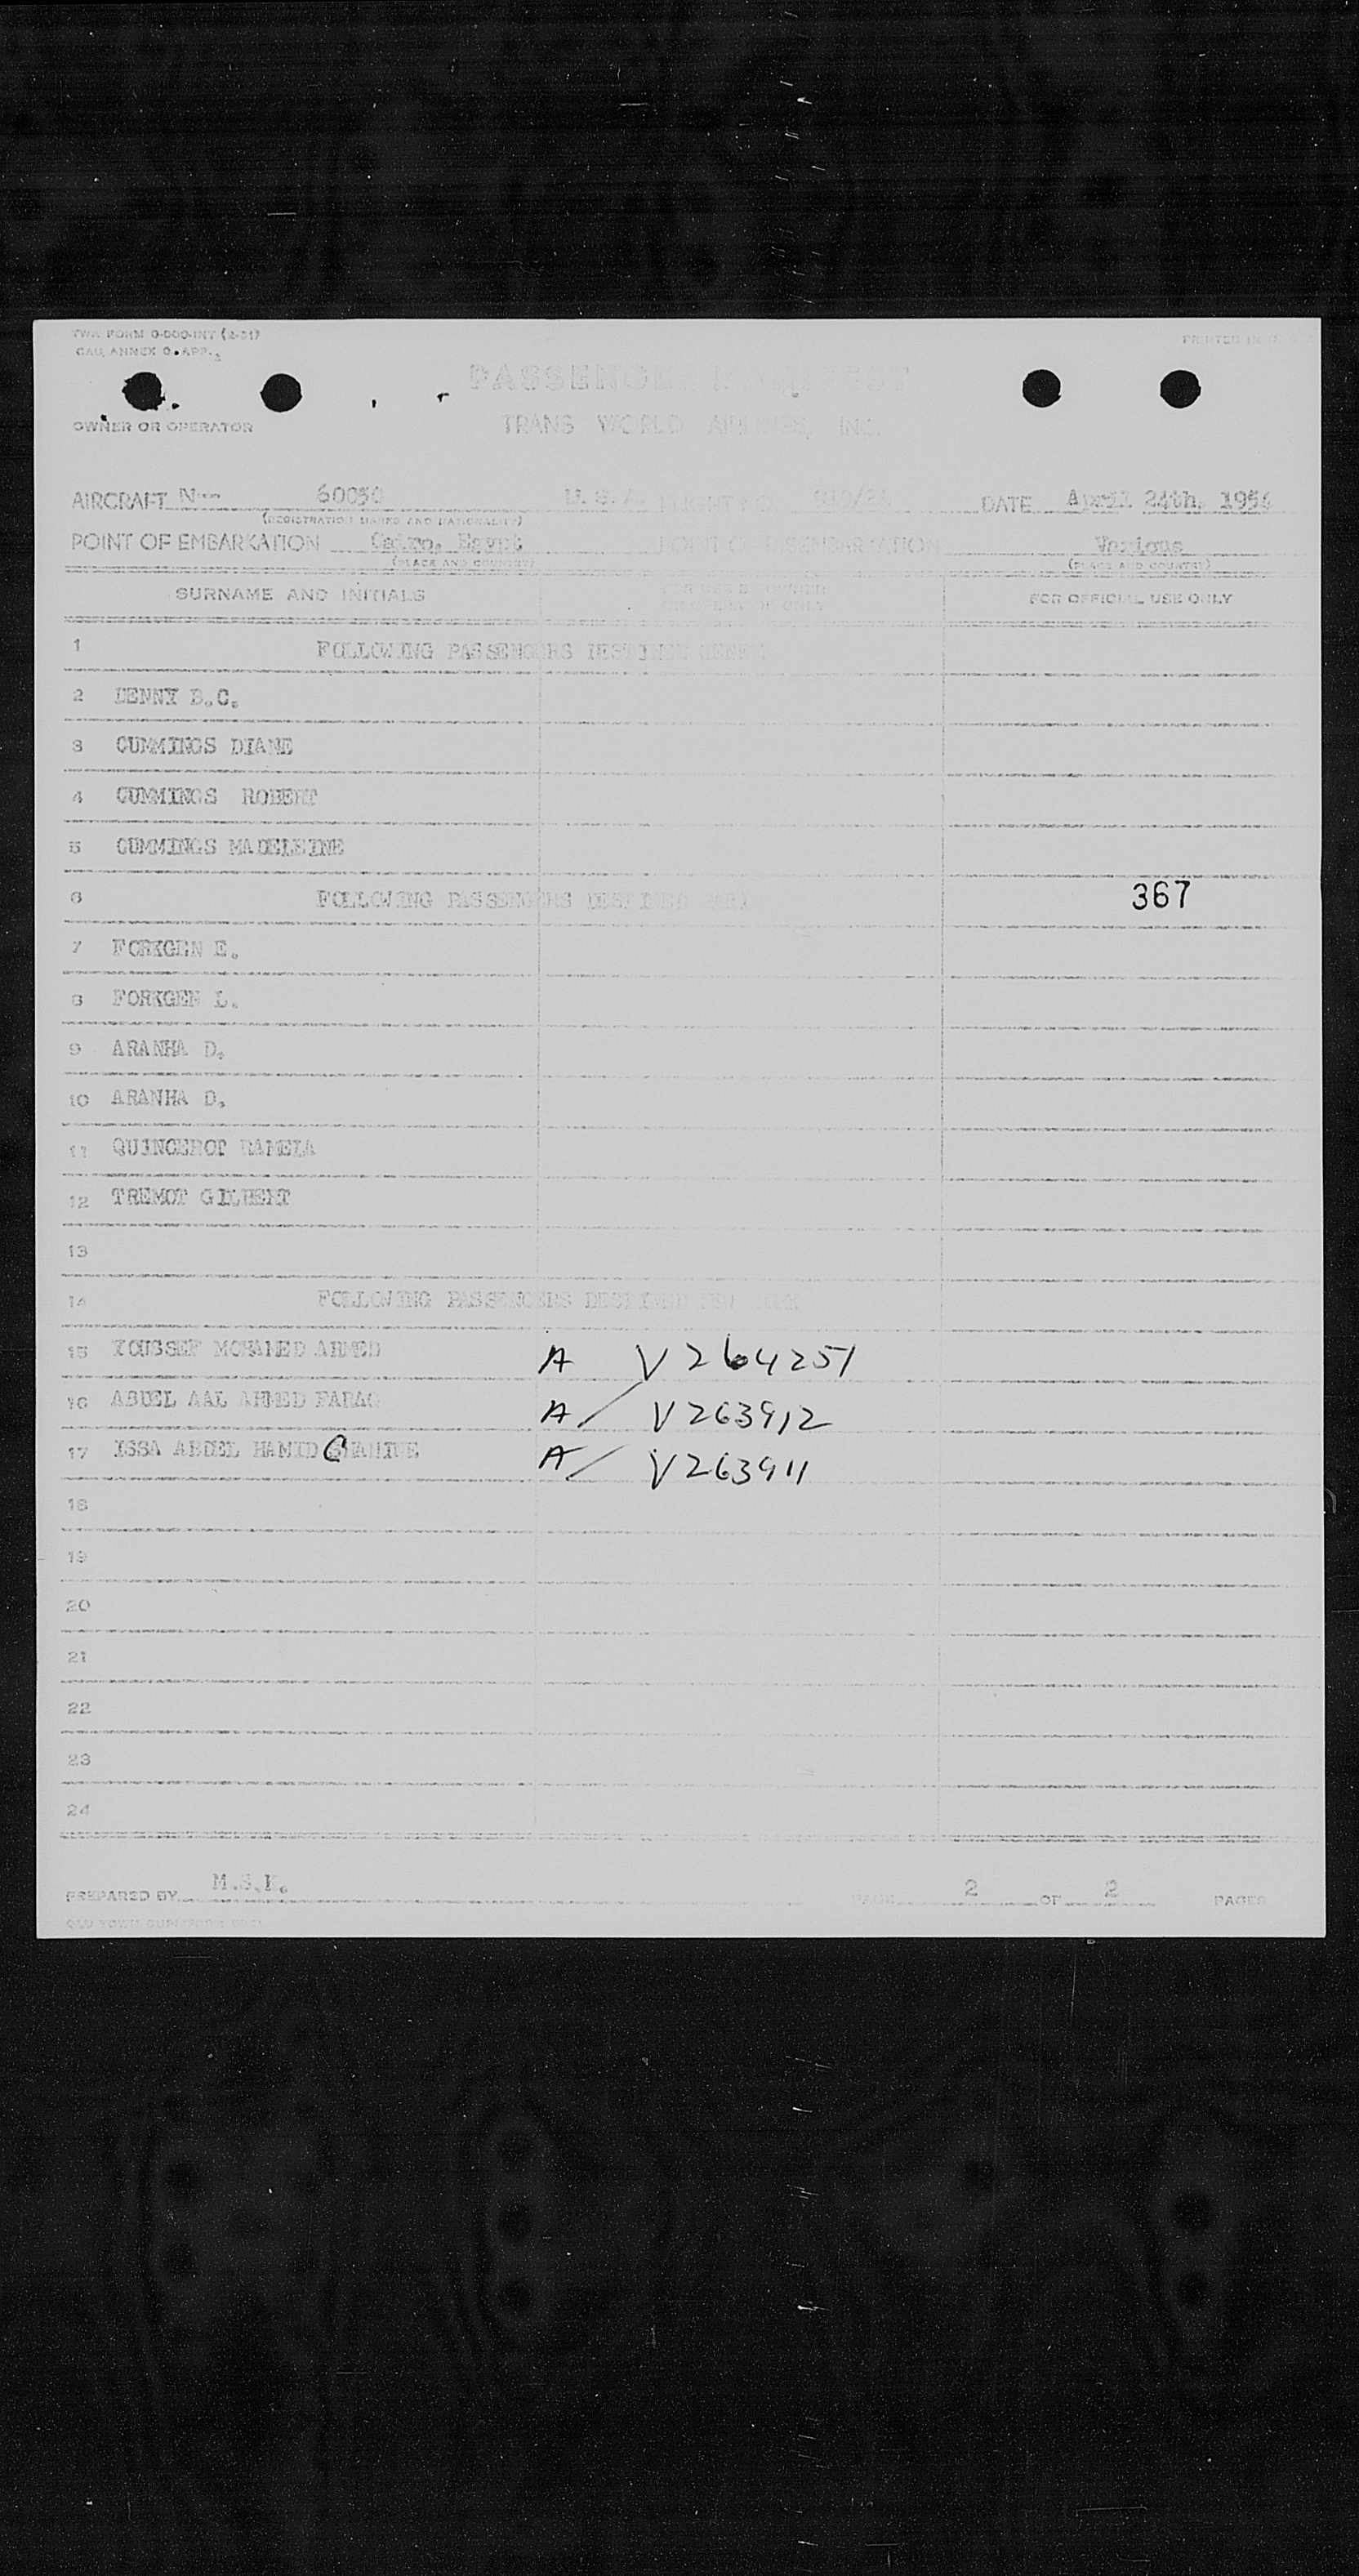 CAO, ANNEX 9, APP.
PRINTED IN
PASSENGER MANIFEST
OWNER OR OPERATOR
TRANS WORLD AIRLINES, INC.
AIRCRAFT N-- 60050 U.S.A. FLIGHT NO. DATE April 24th, 195
(REGISTRATION MARKS AND NATIONALITY)
POINT OF EMBARKATION Cairo, Egypt POINT OF DISEMBARKATION Various
(PLACE AND COUNTRY) (PLACE AND COUNTRY)
SURNAME AND INITIALS FOR USE BY OWNER OR OPERATOR ONLY FOR OFFICIAL USE ONLY
1 FOLLOWING PASSENGERS DESTINED
2 DENNY B.C.
3 CUMMINGS DIANE
4 CUMMINGS ROBERT
5 CUMMINGS MADELEINE
6 FOLLOWING PASSENGERS DESTINED 367
7 FORKGEN E.
8 FORKGEN L.
9 ARANHA D.
10 ARANHA D.
11 QUINCEROT
12 TREMOT GILBERT
13
14 FOLLOWING PASSENGERS DESTINED NEW YORK
15 YOUSSEF MOHAMED AHMED A V264251
16 ABDEL AAL AHMED FARAG A/ V263912
17 ISSA ABDEL HAMID A/ V263911
18
19
20
21
22
23
24
PREPARED BY PAGE 2 OF 2 PAGES